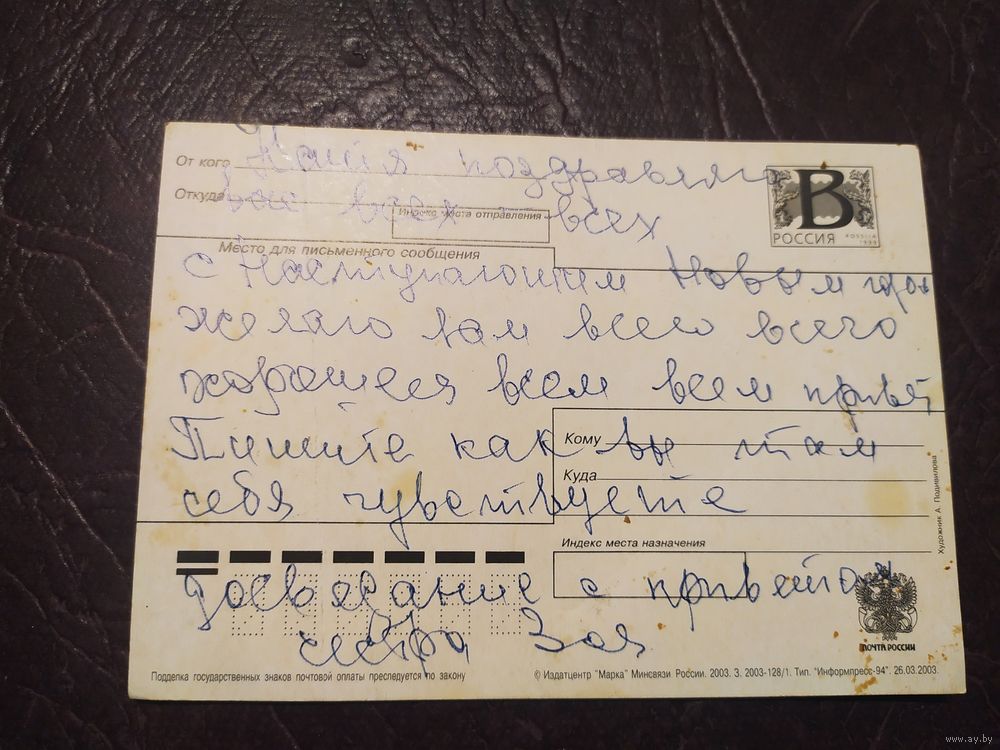 От кого
Катя поздравляю
Откуда
вас всех всех
Индекс места отправления
В
РОССИЯ
ROSSIJA
1999
Место для письменного сообщения
с Наступающим Новым
желаю вам всего всего
хорошего всем всем
Кому
Пишите как вы там
Куда
себя чувствуете
Индекс места назначения
досведание с приветом
сестра Зоя
ПОЧТА РОССИИ
Художник А. Подивилова
Подделка государственных знаков почтовой оплаты преследуется по закону
© Издатцентр "Марка" Минсвязи России. 2003. З. 2003-128/1. Тип. "Информпресс-94". 26.03.2003.
www.ay.by